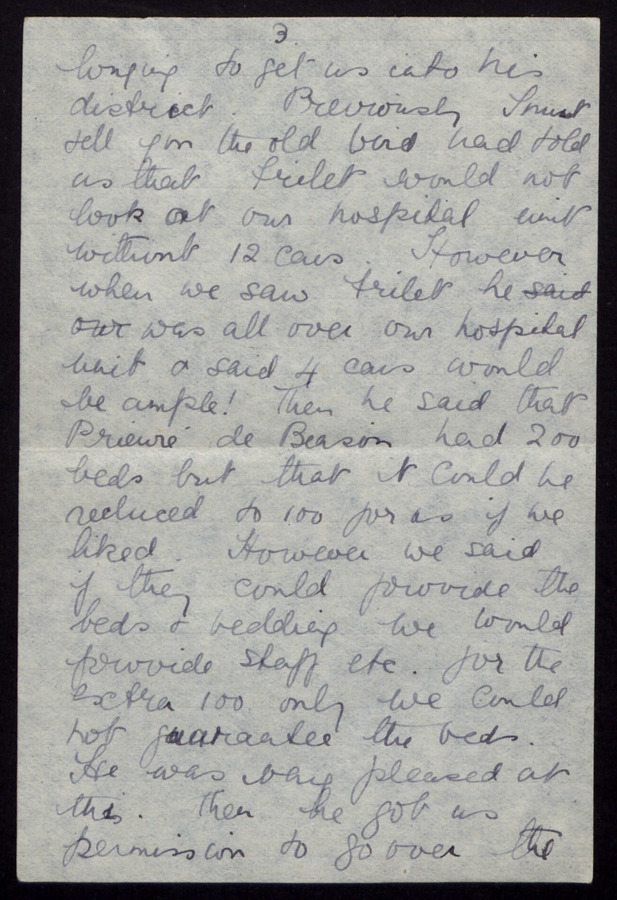 3
longing to get us into his
district. Previously I must
tell you the old bird had told
us that Trilet would not
look at our hospital unit
without 12 cars. However
when we saw Trilet he said
our was all over our hospital
unit & said 4 cars would
be ample! Then he said that
Prieuré de Beason had 200
beds but that it could be
reduced to 100 for us if we
liked. However we said
if they could provide the
beds & bedding we would
provide staff etc. for the
extra 100 only we could
not guarantee the beds.
He was very pleased at
this. Then he got us
permission to go over the